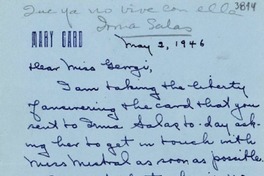 Que ya no vive con ella
Irma Salas
3814
MARY CARD
May 2, 1946
Dear Miss Geergi,
I am taking the liberty
of answering the card that you
sent to Irma Salas to-day ask-
ing her to get in touch with
Miss Mistral as soon as possible.